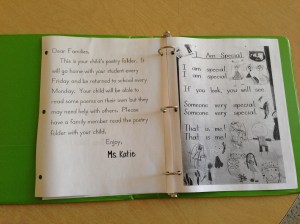 Dear Families,
This is your child's poetry folder. It
will go home with your student every
Friday and be returned to school every
Monday. Your child will be able to
read some poems on their own but they
may need help with others. Please
have a family member read the poetry
folder with your child.
Enjoy,
Ms. Katie
I Am Special
I am special.
I am special.
If you look, you will see
Someone very special.
Someone very special.
That is me!
That is me!